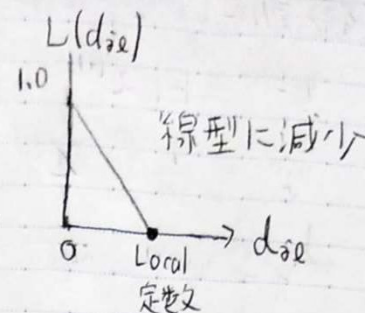 L(dil)
1.0
線型に減少
0
Local
定数
dil